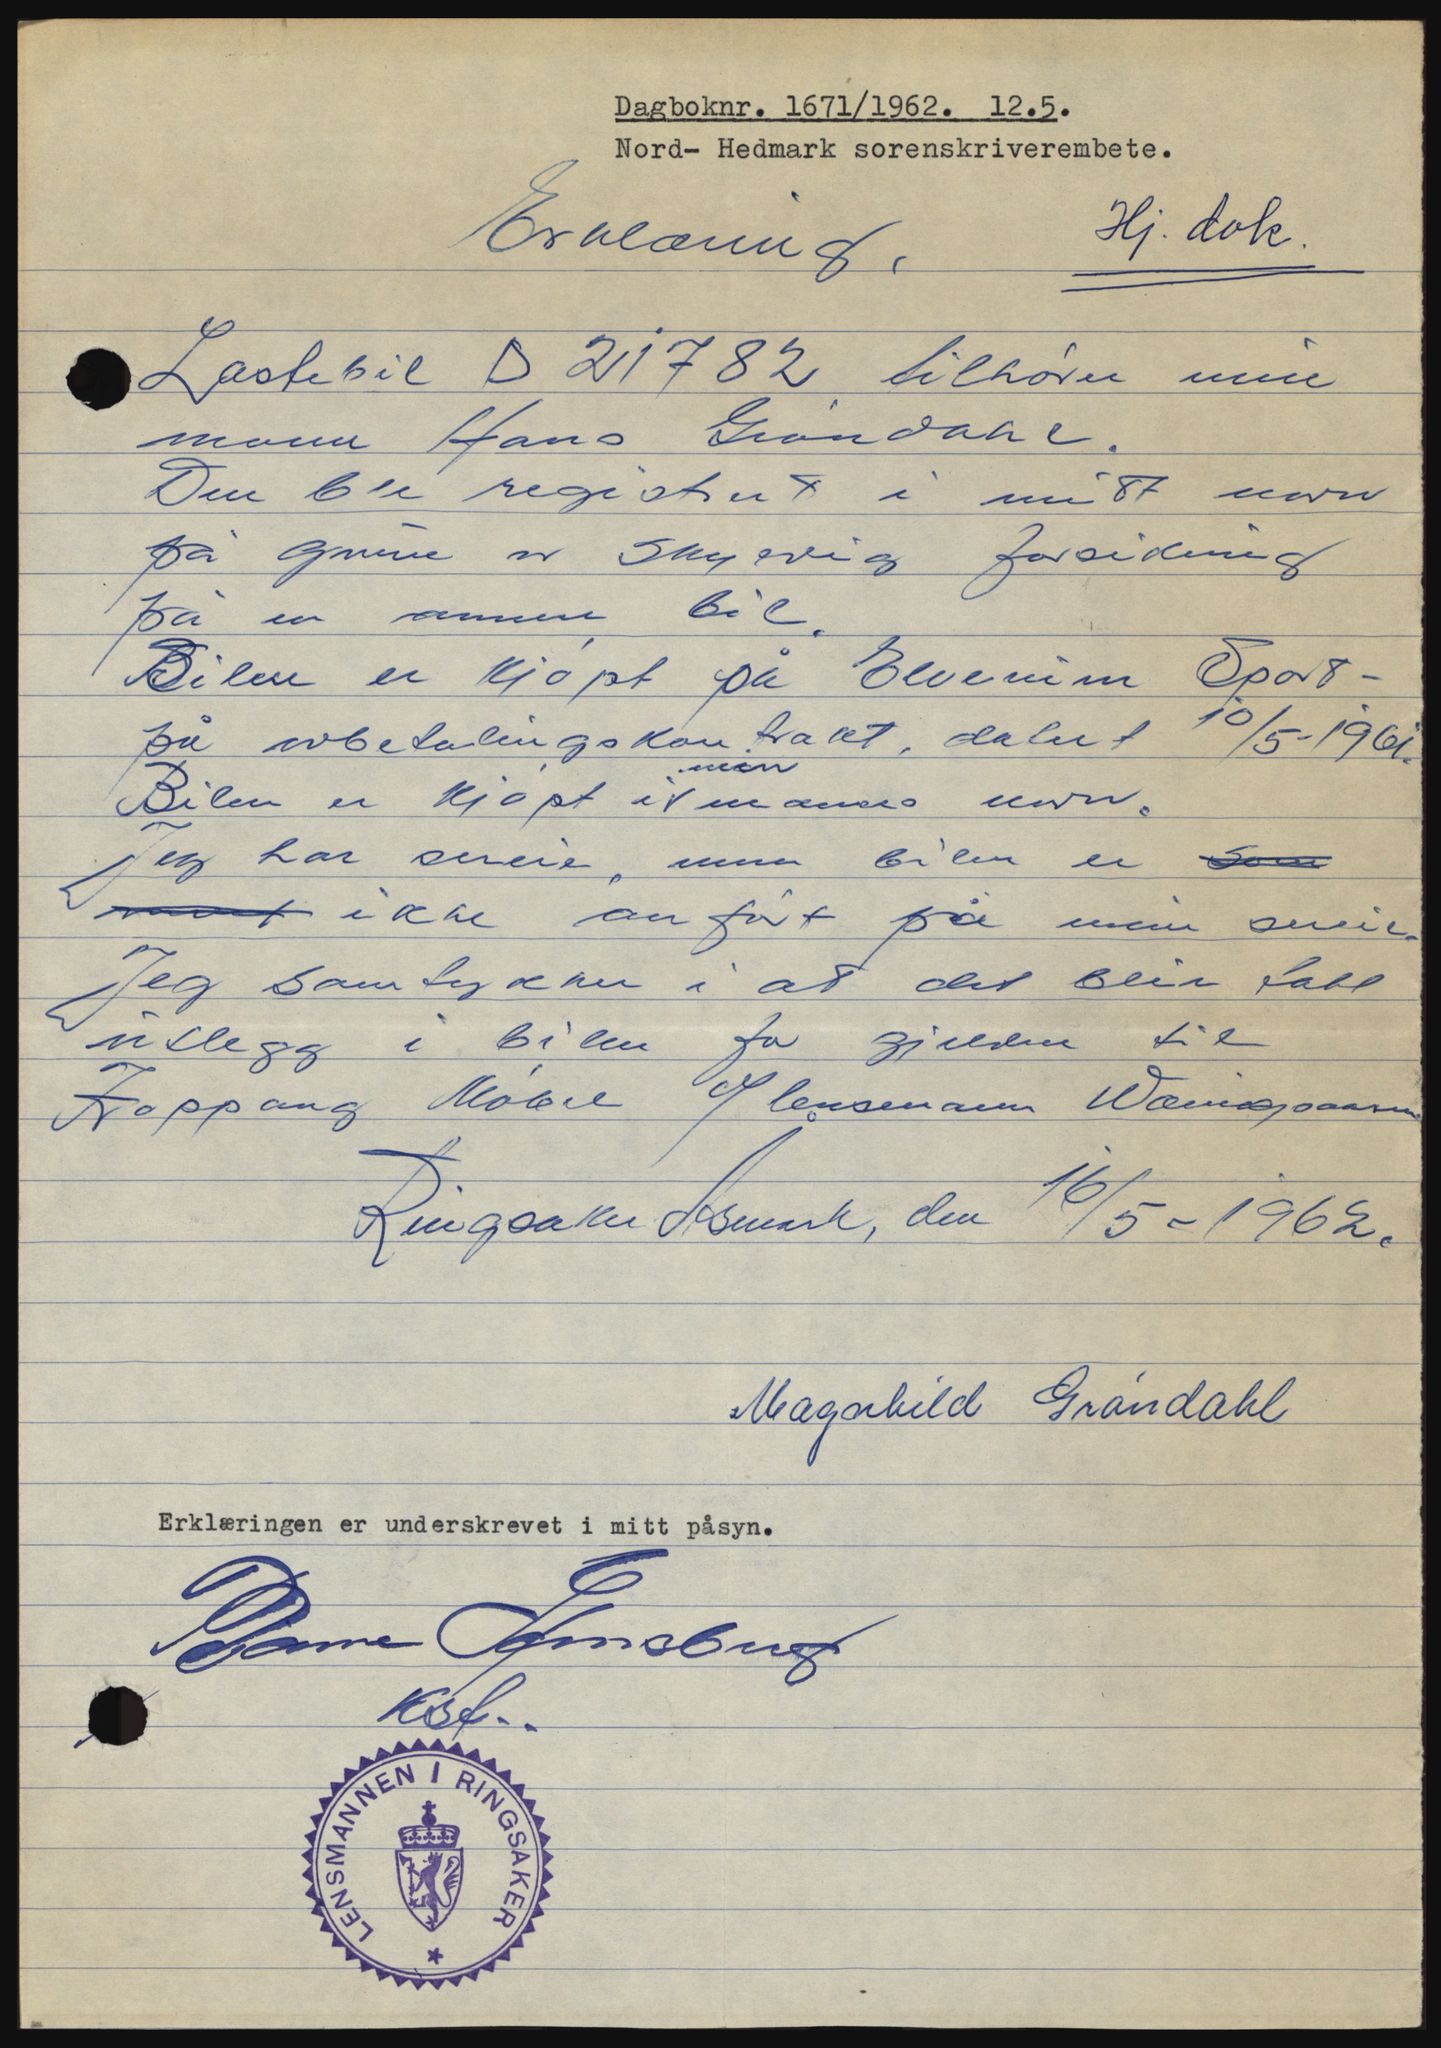 Dagboknr. 1671/1962. 12.5.
Nord- Hedmark sorenskriverembete.
Erklæring.
Hj. dok.
Lastebil D 21782 tilhører min
mann Hans Gröndahl.
Den ble registrert i mitt navn
på grunn av skyldig forsikring
på en annen bil.
Bilen er kjøpt på Elverum Sport-
på avbetalingskontrakt, datert 10/5-1961.
Bilen er kjøpt i min manns navn.
Jeg har sereie, men bilen er som
ikke anført på min sereie.
Jeg samtykker i at det blir tatt
utlegg i bilen for gjelden til
Koppang Møbel v/lensmann
Ringsaker Åsmark, den 16/5-1962.
Magnhild Gröndahl
Erklæringen er underskrevet i mitt påsyn.
Bjarne
kst..
LENSMANNEN I RINGSAKER